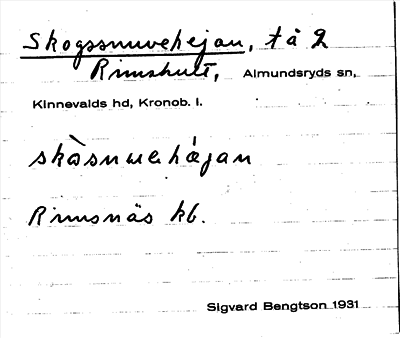 Skogssnuvehejan, tå 2
Rimshult, Almundsryds sn,
Kinnevalds hd, Kronob. l.
skàsnuahæjan
Rimsnäs kb.
Sigvard Bengtson 1931